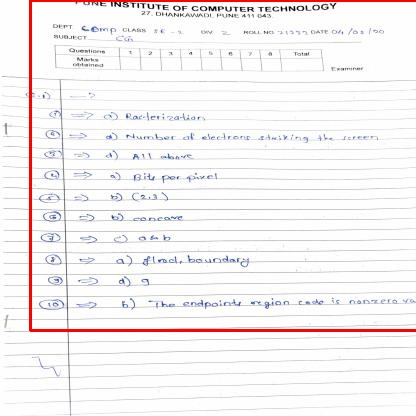 PUNE INSTITUTE OF COMPUTER TECHNOLOGY
27, DHANKAWADI, PUNE 411 043.
DEPT Comp CLASS SE-2 DIV. 2 ROLL NO 21 DATE 04/03/20
SUBJECT CG
Questions 1 2 3 4 5 6 7 8 Total
Marks obtained
Examiner
Q.1) →
① ⇒ a) Rasterization
② ⇒ d) Number of electrons striking the screen
③ ⇒ d) All above
④ ⇒ a) Bits per pixel
⑤ ⇒ b) (2,3)
⑥ ⇒ b) concave
⑦ ⇒ c) a & b
⑧ ⇒ a) flood, boundary
⑨ ⇒ d) 9
⑩ ⇒ b) The endpoints region code is nonzero va